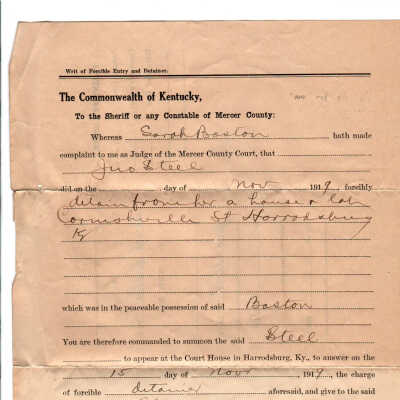 Writ of Forcible Entry and Detainer.
The Commonwealth of Kentucky,
To the Sheriff or any Constable of Mercer County:
Whereas Sarah Baston hath made
complaint to me as Judge of the Mercer County Court, that
Jno Steel
did on the day of Nov 1919, forcibly
detain from her a house & lot
Cornishville St Harrodsburg
Ky
which was in the peaceable possession of said Baston
You are therefore commanded to summon the said Steel
to appear at the Court House in Harrodsburg, Ky., to answer on the
15 day of Nov 1919, the charge
of forcible detainer aforesaid, and give to the said